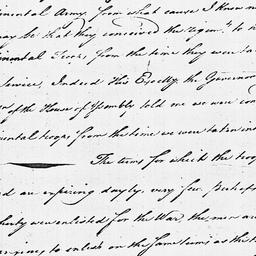 inental Army, from what cause I know n
may be that they conceived the
inental Troops from the time they were
Service, Indeed His Excelly. the Governor
of the House of Assembly told me we were con
inental troops from the time we were taken in
The terms for which the troo
and are expiring dayly, very few Perhaps
were enlisted for the War, the men are
to enlist on the same terms as the